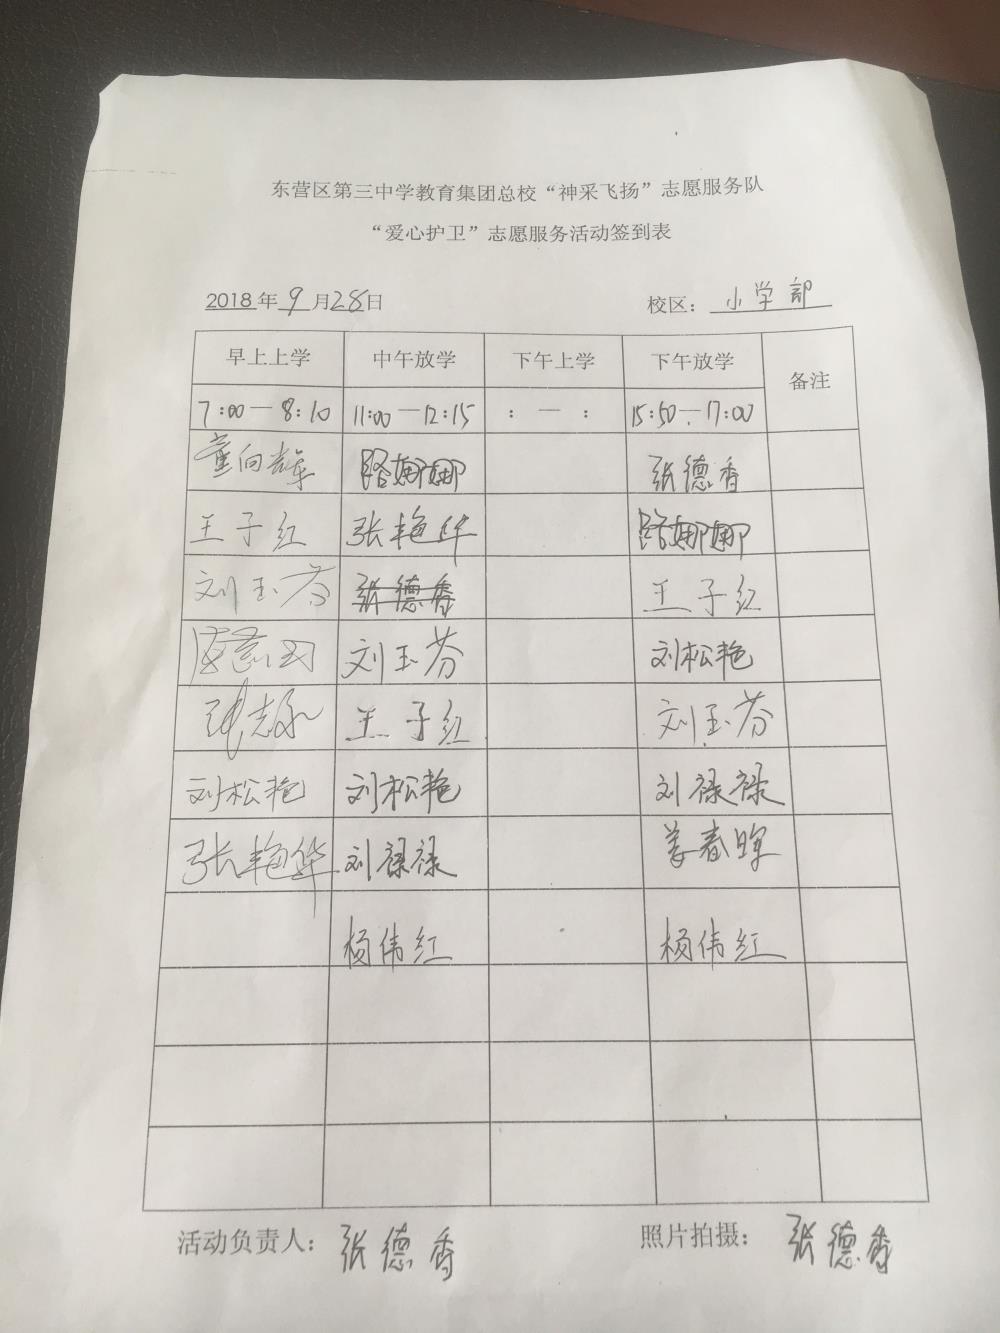 东营区第三中学教育集团总校“神采飞扬”志愿服务队
“爱心护卫”志愿服务活动签到表
2018年9月28日 校区：小学部
早上上学 中午放学 下午上学 下午放学 备注
7:00—8:10 11:00—12:15 ：—： 15:50—17:00
童向辉 路娜娜 张德香
王子红 张艳华 路娜娜
刘玉芬 张德香 王子红
刘玉芬 刘松艳
王子红 刘玉芬
刘松艳 刘松艳 刘禄禄
张艳华 刘禄禄 姜春晖
杨伟红 杨伟红
活动负责人：张德香 照片拍摄：张德香